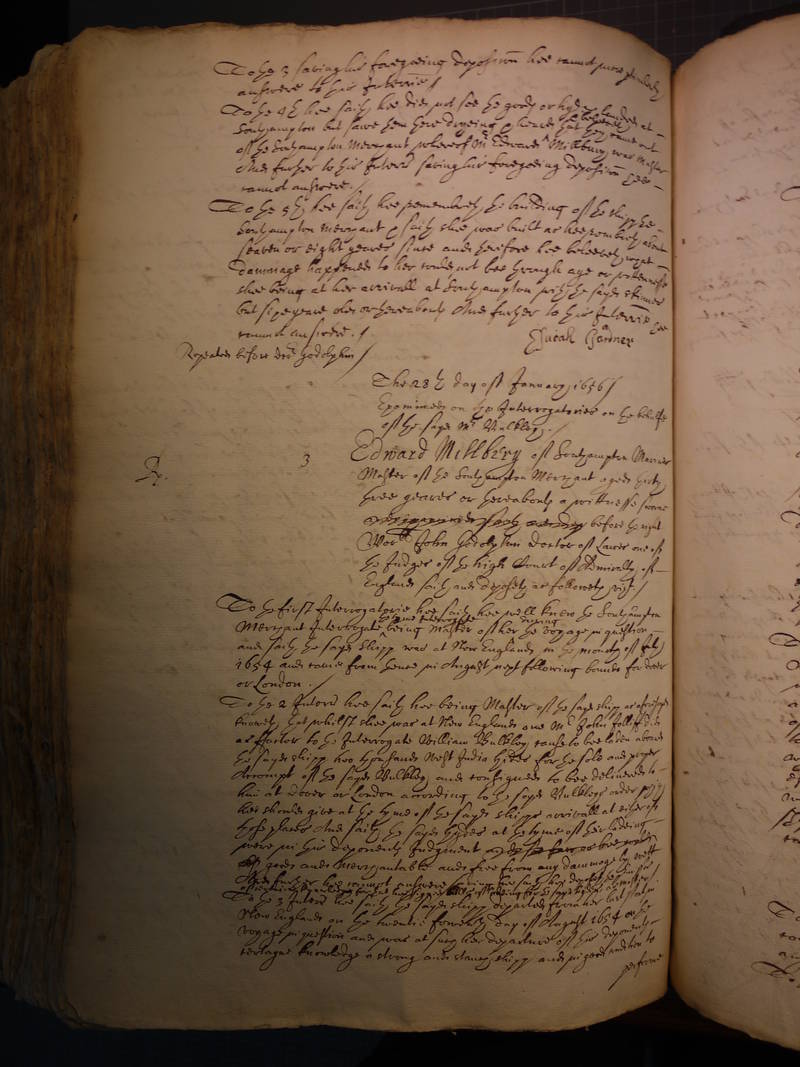 To the 3 saving his foregoeing deposicon hee cannot more
answere to this Interrie /
To the 4th hee saith hee did not see the goods or hydes landed at
Southampton but sawe them here and heard that they came out
of the Southampton Merchant whereof Mr Edward Millbury was Master
And further to this Interrie saving his foregoeing deposicon hee
cannot answere. /
To the 5th hee saith hee remembreth the building of the shipp the
Southampton Merchant & saith shee was built as hee remembreth about
seaven or eight yeares since and therefore hee beleeveth what
dammage happened to her could not bee through age or rottennesse
shee being at her arrivall at Southampton with the sayd
but sixe yeares old or thereabouts And further to this Interrie hee
cannot answere. /
Isaiah Gardner
Repeated before doctor Godolphin /
The 28th day of January 1656 /
Examined on the Interrogatories on the behalfe
of the sayd Mr Bulkley. /
3
Edward Millbery of Southampton Mariner
Master of the Southampton Merchant aged thirty
three yeares or thereabouts a wittnesse sworne
before the right
Worll John Godolphin doctor of Lawes one of
the Judges of the high Court of Admiralty of
England saith and deposeth as followeth vizt /
To the first Interrogatorie hee saith hee well knew the Southampton
Merchant Interrogate being Master of her the voyage in question
and saith the sayd shipp was at New England in the moneth of July
1654 and came from thence in August next following bound for dover
or London. /
To the 2 Interrie hee saith hee being Master of the sayd shipp as aforesayd
knoweth that whilst shee was at New England one Mr John
as ffactor to the Interrogate William Bulkley caused to bee laden aboard
the sayd shipp two thousand West India hydes for the sole and proper
Accompt of the sayd Bulkley and consigned to bee delivered to
him at dover or London according to the sayd Bulkleys order
hee should give at the tyme of the sayd shipps arrivall at either of
those places And saith the sayd hydes at the tyme of their ladeing
were in this deponents Judgment
good and merchantable and free from any dammage by wett
And further hee cannot answere
To the 3 Interrie hee saith the sayd shipp departed from her last place
New England on the twentie fowerth day of August 1654 on the
voyage in question and was at such her departure of this deponents
certayne knowledge a strong and stanch shipp and in good to
performe